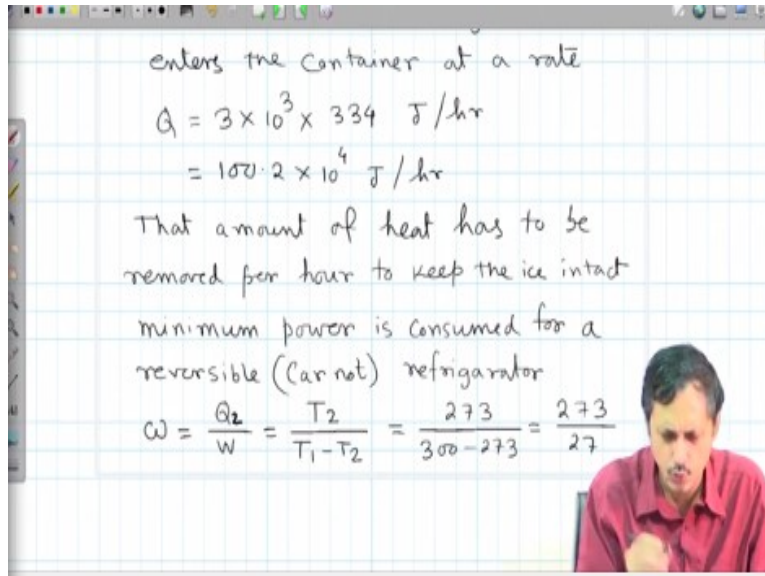 enters the container at a rate
Q = 3 × 10³ × 334 J/hr
= 100.2 × 10⁴ J/hr
That amount of heat has to be
removed per hour to keep the ice intact
minimum power is consumed for a
reversible (Carnot) refrigarator
ω = Q₂/W = T₂/(T₁-T₂) = 273/(300-273) = 273/27